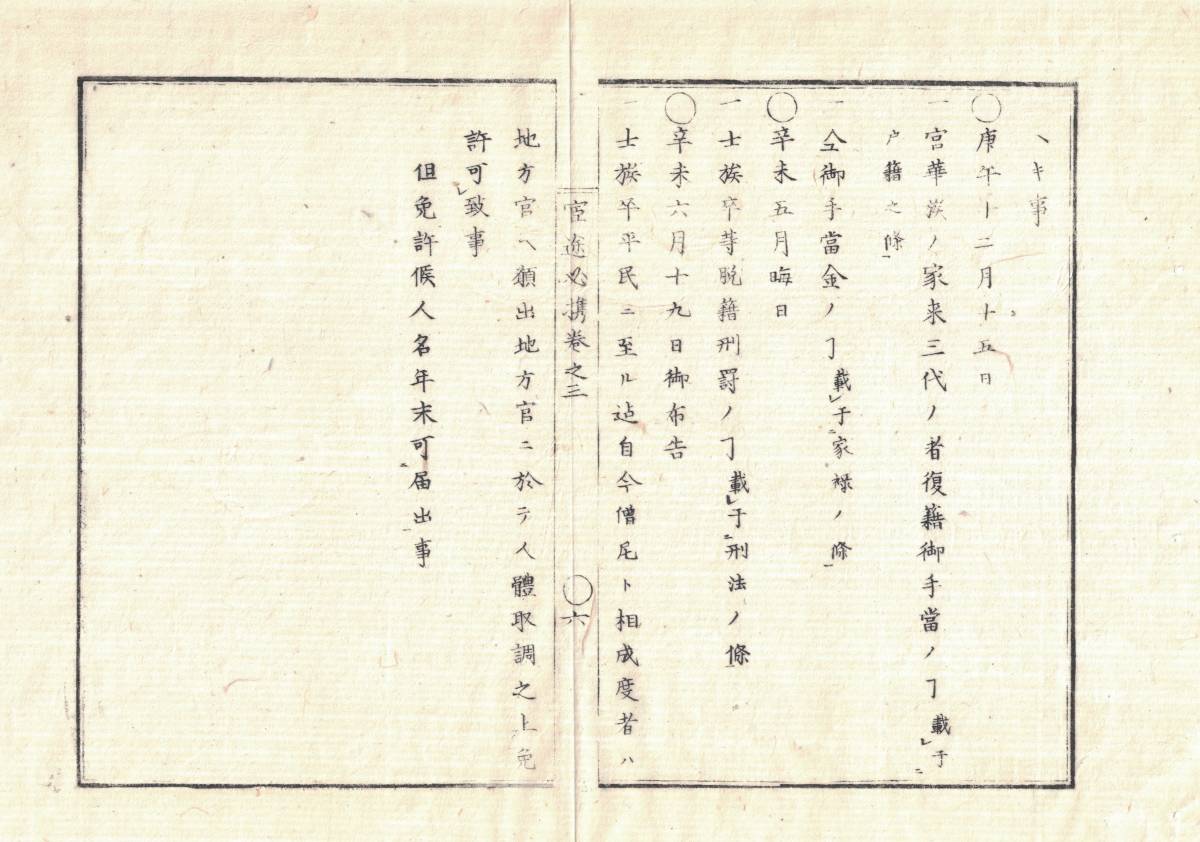 ヘキ事
○庚午十二月十五日
一宮華族ノ家来三代ノ者復籍御手當ノヿ載于
戸籍之條
一仝御手當金ノヿ載于家禄ノ條
○辛未五月晦日
一士族卒等脱籍刑罰ノヿ載于刑法ノ條
○辛未六月十九日御布告
一士族卒平民ニ至ル迠自今僧尼ト相成度者ハ
官途必携巻之三
○六
地方官ヘ願出地方官ニ於テ人體取調之上免
許可致事
但免許候人名年末可届出事